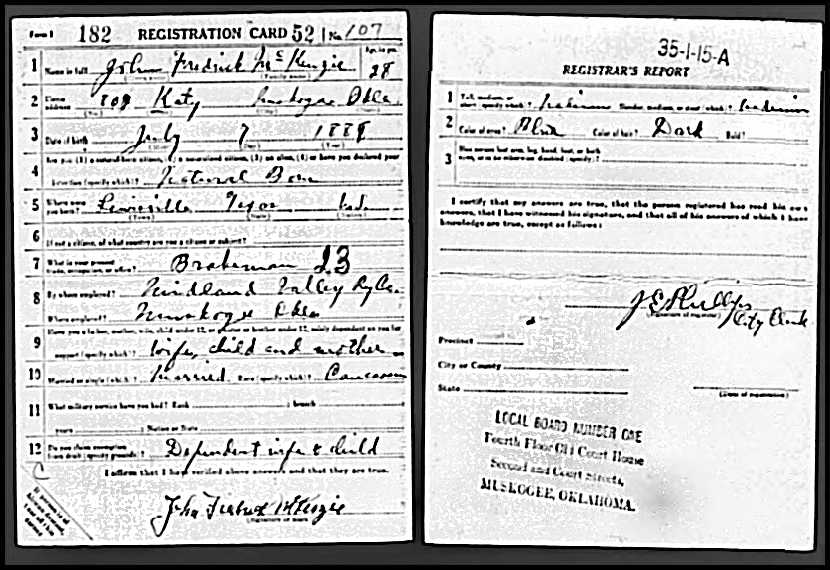 Form 1 182 REGISTRATION CARD 52 No. 107
1 Name in full John Fredrick McKenzie Age, in yrs. 28
2 Home address 808 Katy Muskogee Okla.
3 Date of birth July 7 1889
4 Are you (1) a natural-born citizen, (2) a naturalized citizen, (3) an alien, (4) or have you declared your
intention (specify which)? Natural Born
5 Where were you born? Lewisville Texas
6 If not a citizen, of what country are you a citizen or subject?
7 What is your present trade, occupation, or office? Brakeman 23
8 By whom employed? Midland Valley
Where employed? Muskogee Okla
9 Have you a father, mother, wife, child under 12, or a sister or brother under 12, solely dependent on you for
support (specify which)? Wife, child and mother
10 Married or single (which)? Married Race (specify which)? Caucasian
11 What military service have you had? Rank ; branch
years ; Nation or State
12 Do you claim exemption from draft (specify grounds)? Dependent wife & child
I affirm that I have verified above answers and that they are true.
John Fredrick McKenzie
(Signature or mark)
35-1-15-A
REGISTRAR'S REPORT
1 Tall, medium, or short (specify which)? Medium Slender, medium, or stout (which)? Medium
2 Color of eyes? Color of hair? Dark Bald?
3 Has person lost arm, leg, hand, foot, or both
eyes, or is he otherwise disabled (specify)?
I certify that my answers are true, that the person registered has read his own
answers, that I have witnessed his signature, and that all of his answers of which I have
knowledge are true, except as follows:
J E Phillips
(Signature of registrar)
City Clerk
Precinct
City or County
State
(Date of registration)
LOCAL BOARD NUMBER ONE
Fourth Floor Old Court House
Second and Court Streets,
MUSKOGEE, OKLAHOMA.